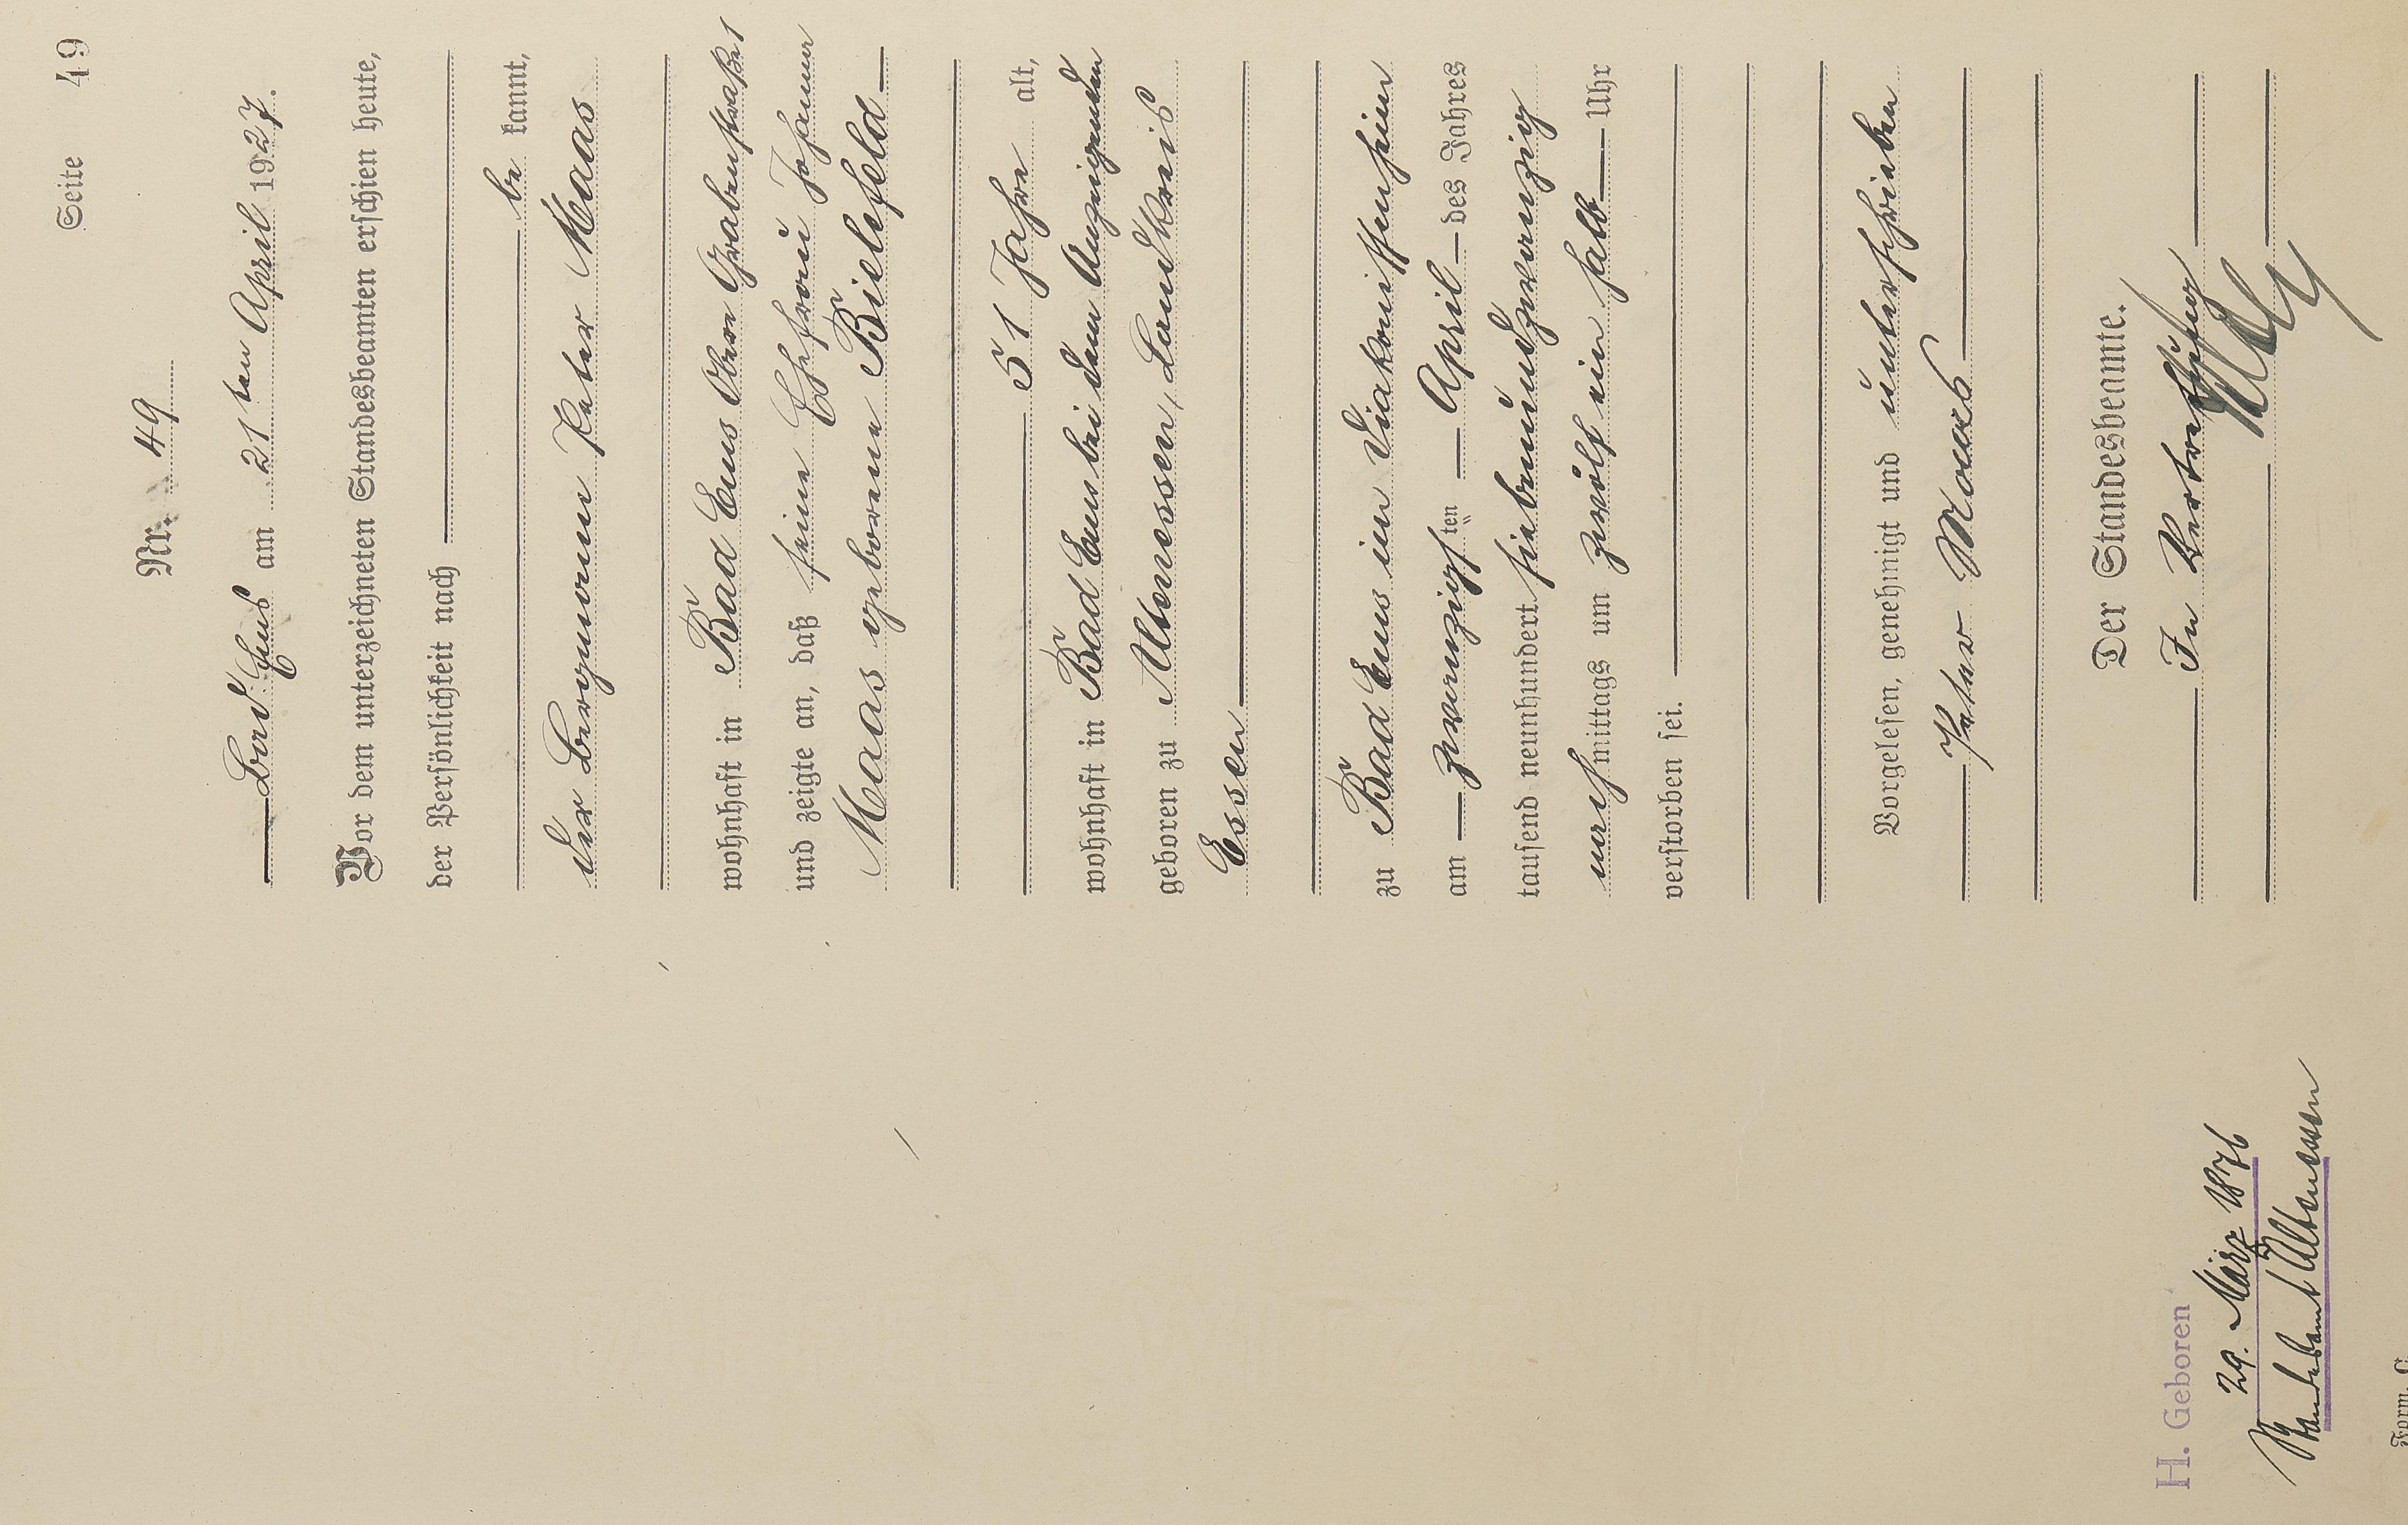 Seite 49
Nr. 49
Bad Ems am 21ten April 1927.
Vor dem unterzeichneten Standesbeamten erschien heute,
der Persönlichkeit nach
be kannt,
der Bergmann Peter Maas
wohnhaft in Bad Ems Obere Grabenstraße 1
und zeigte an, daß seine Ehefrau Johanne
Maas geborene Bielefeld
51 Jahre alt,
wohnhaft in Bad Ems bei dem Anzeigenden
geboren zu Altenessen, Landkreis
Essen
zu Bad Ems im Diakonissenheim
am zwanzigsten April des Jahres
tausend neunhundert siebenundzwanzig
nachmittags um zwölf ein halb Uhr
verstorben sei.
Vorgelesen, genehmigt und unterschrieben
Peter Maas
Der Standesbeamte.
In Vertretung
H. Geboren
29. März 1876
Standesamt Altenessen
Form. C